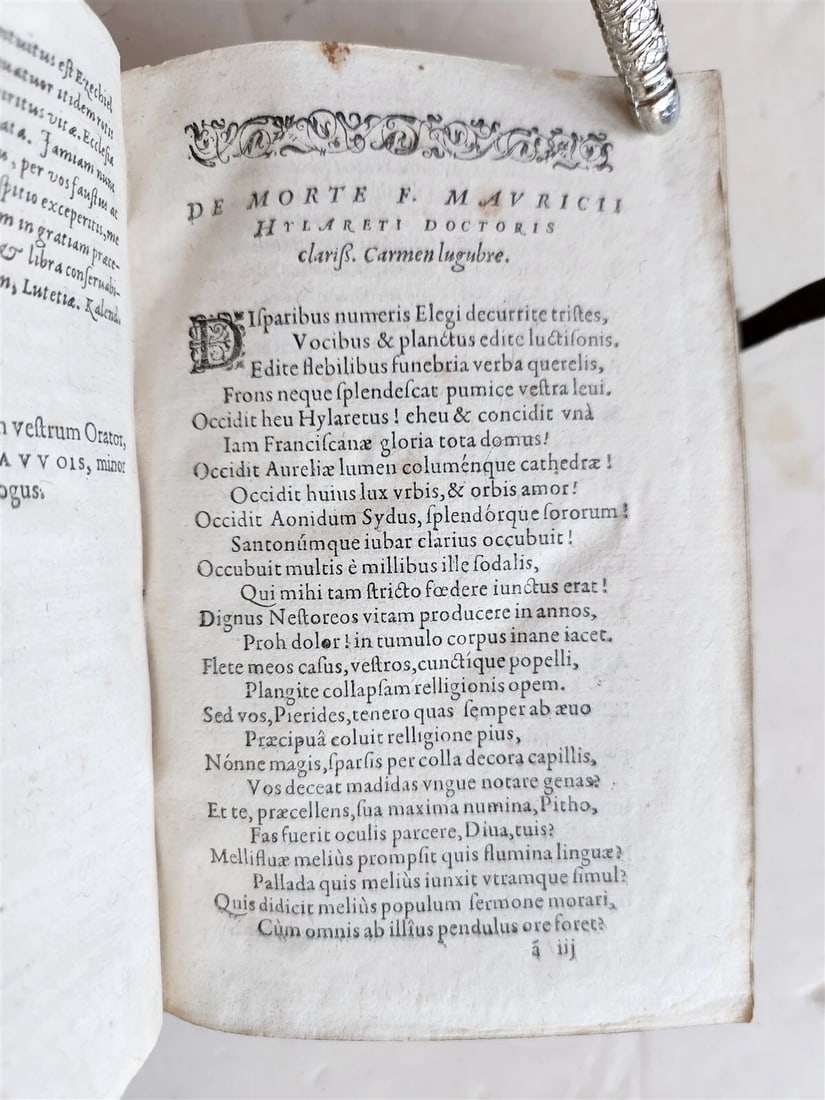 ntuitus eſt Ezechiel
uatuor itidem rotis
iritus vitæ. Eccleſia
ata. Jamiam nunc
, per vos fauſtus ac
ſpitio exceperitis, me
m in gratiam præce-
& libra conſeruabi-
n, Lutetiæ. Kalend.
veſtrum Orator,
AVVOIS, minor
ogus.
DE MORTE F. MAVRICII
HYLARETI DOCTORIS
clariſſ. Carmen lugubre.
DIſparibus numeris Elegi decurrite triſtes,
Vocibus & planctus edite luctiſonis.
Edite flebilibus funebria verba querelis,
Frons neque ſplendeſcat pumice veſtra leui.
Occidit heu Hylaretus! eheu & concidit vnà
Iam Franciſcanæ gloria tota domus!
Occidit Aureliæ lumen columénque cathedræ!
Occidit huius lux vrbis, & orbis amor!
Occidit Aonidum Sydus, ſplendórque ſororum!
Santonúmque iubar clarius occubuit!
Occubuit multis è millibus ille ſodalis,
Qui mihi tam ſtricto fœdere iunctus erat!
Dignus Neſtoreos vitam producere in annos,
Proh dolor! in tumulo corpus inane iacet.
Flete meos caſus, veſtros, cunctíque popelli,
Plangite collapſam relligionis opem.
Sed vos, Pierides, tenero quas ſemper ab æuo
Præcipuâ coluit relligione pius,
Nónne magis, ſparſis per colla decora capillis,
Vos deceat madidas vngue notare genas?
Et te, præcellens, ſua maxima numina, Pitho,
Fas fuerit oculis parcere, Diua, tuis?
Mellifluæ meliùs prompſit quis flumina linguæ?
Pallada quis meliùs iunxit vtramque ſimul?
Quis didicit meliùs populum ſermone morari,
Cùm omnis ab illîus pendulus ore foret?
ã iij